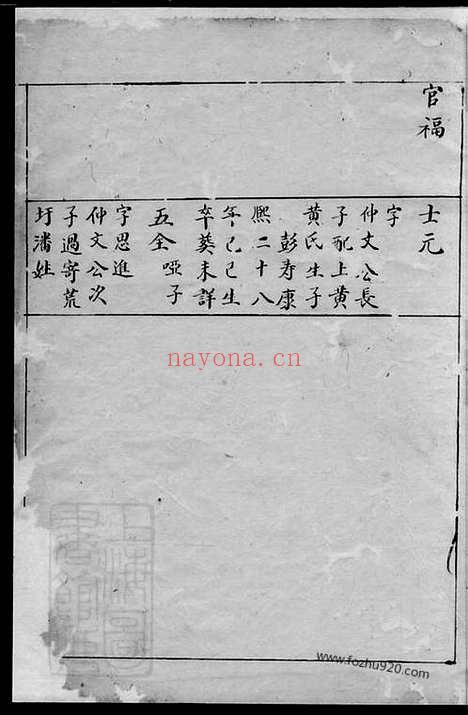 官福
士元
字
仲文公長
子配上黄
黄氏生子
彭寿康
熙二十八
年己巳生
卒葵未詳
五全 啞子
字思進
仲文公次
子過寄荒
圩潘姓
nayona.cn
www.fozhu920.com